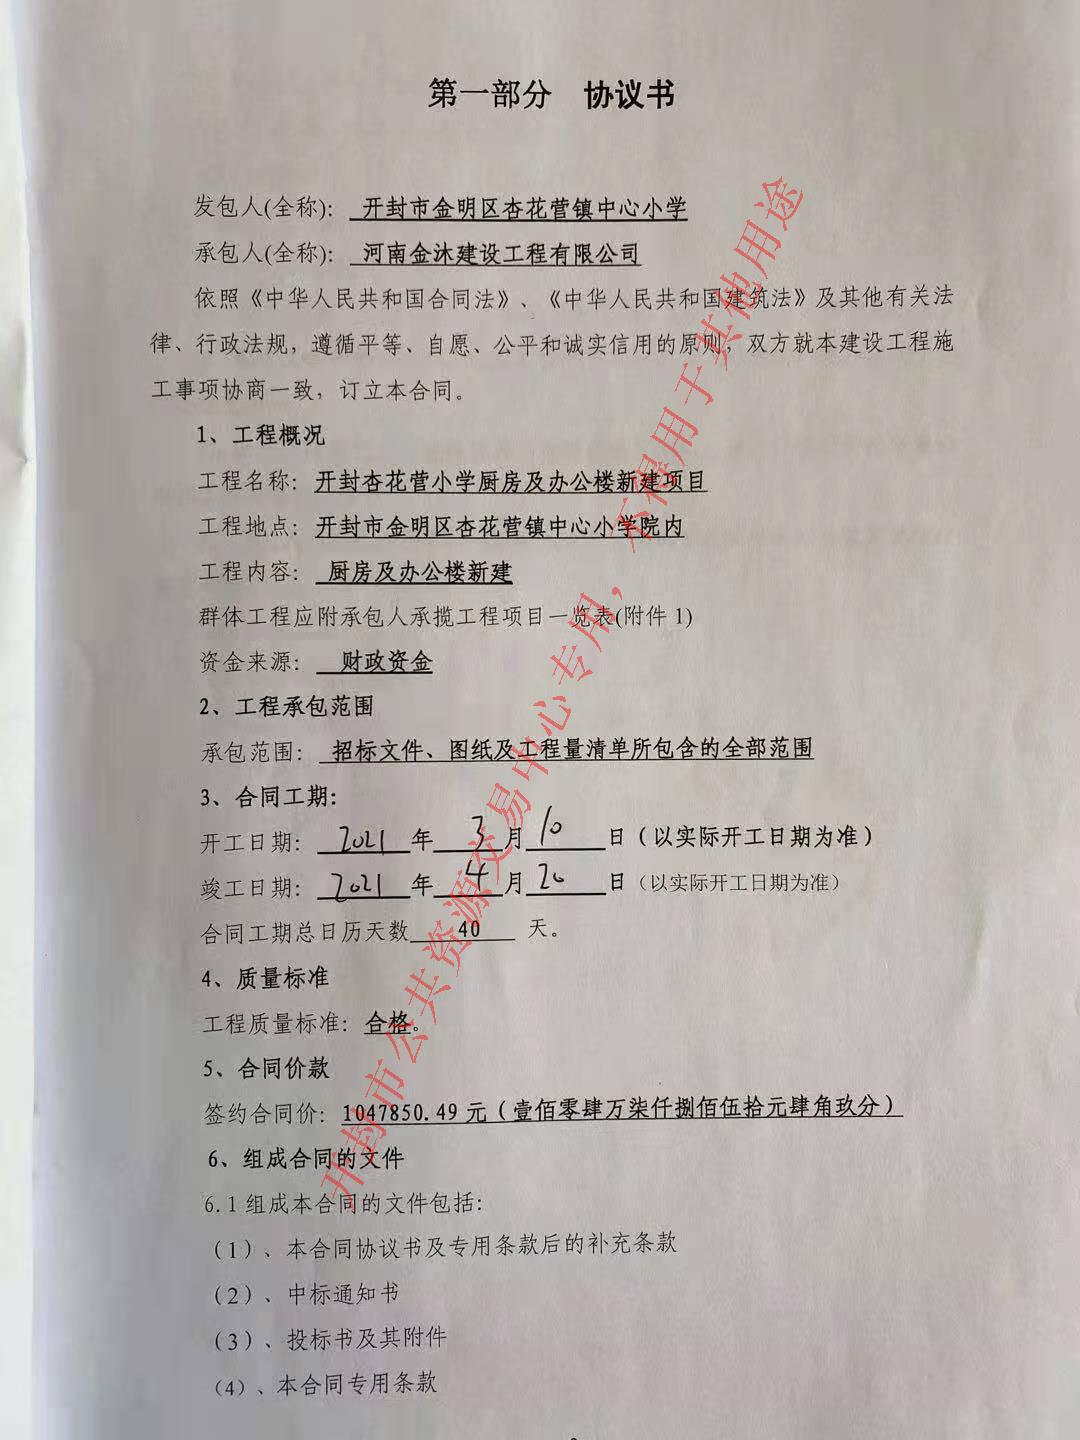 第一部分 协议书
发包人(全称): 开封市金明区杏花营镇中心小学
承包人(全称): 河南金沐建设工程有限公司
依照《中华人民共和国合同法》、《中华人民共和国建筑法》及其他有关法
律、行政法规，遵循平等、自愿、公平和诚实信用的原则，双方就本建设工程施
工事项协商一致，订立本合同。
1、工程概况
工程名称: 开封杏花营小学厨房及办公楼新建项目
工程地点: 开封市金明区杏花营镇中心小学院内
工程内容: 厨房及办公楼新建
群体工程应附承包人承揽工程项目一览表(附件1)
资金来源: 财政资金
2、工程承包范围
承包范围: 招标文件、图纸及工程量清单所包含的全部范围
3、合同工期:
开工日期: 2021 年 3 月 10 日（以实际开工日期为准）
竣工日期: 2021 年 4 月 20 日（以实际开工日期为准）
合同工期总日历天数 40 天。
4、质量标准
工程质量标准: 合格。
5、合同价款
签约合同价: 1047850.49 元（壹佰零肆万柒仟捌佰伍拾元肆角玖分）
6、组成合同的文件
6.1 组成本合同的文件包括:
（1）、本合同协议书及专用条款后的补充条款
（2）、中标通知书
（3）、投标书及其附件
（4）、本合同专用条款
开封市公共资源交易中心专用，不得用于其他用途